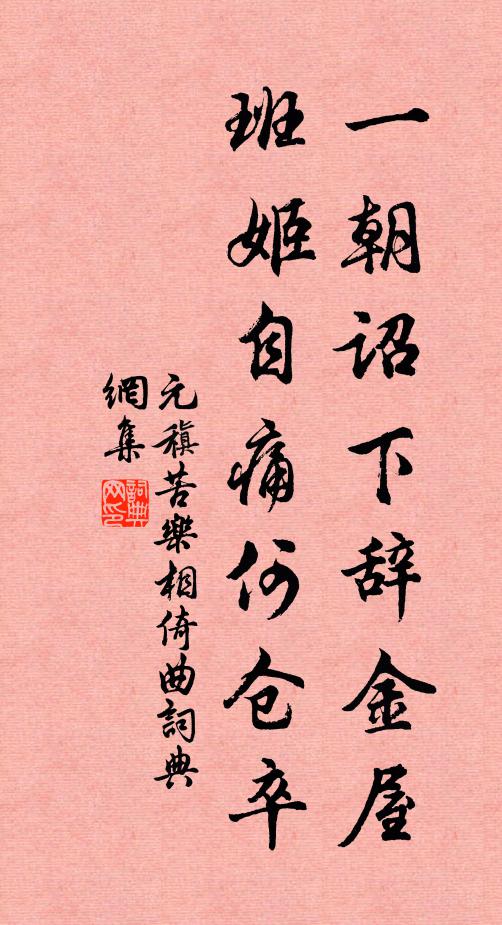 一朝诏下辞金屋
班姬自痛何仓卒
元稹苦樂相倚曲詞典
網集
詞典网印